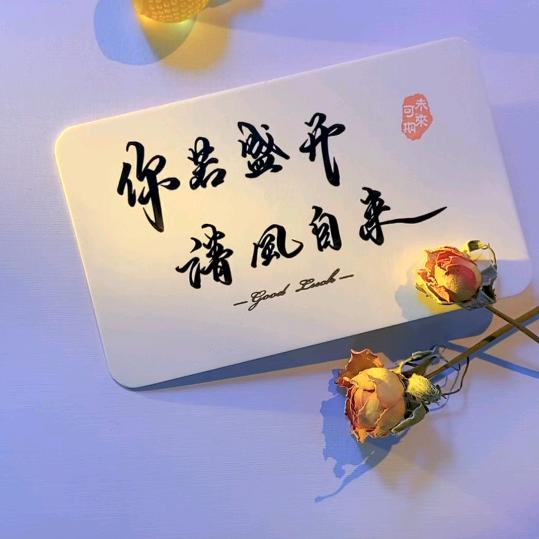 你若盛开
清風自来
Good Luck
未來
可期